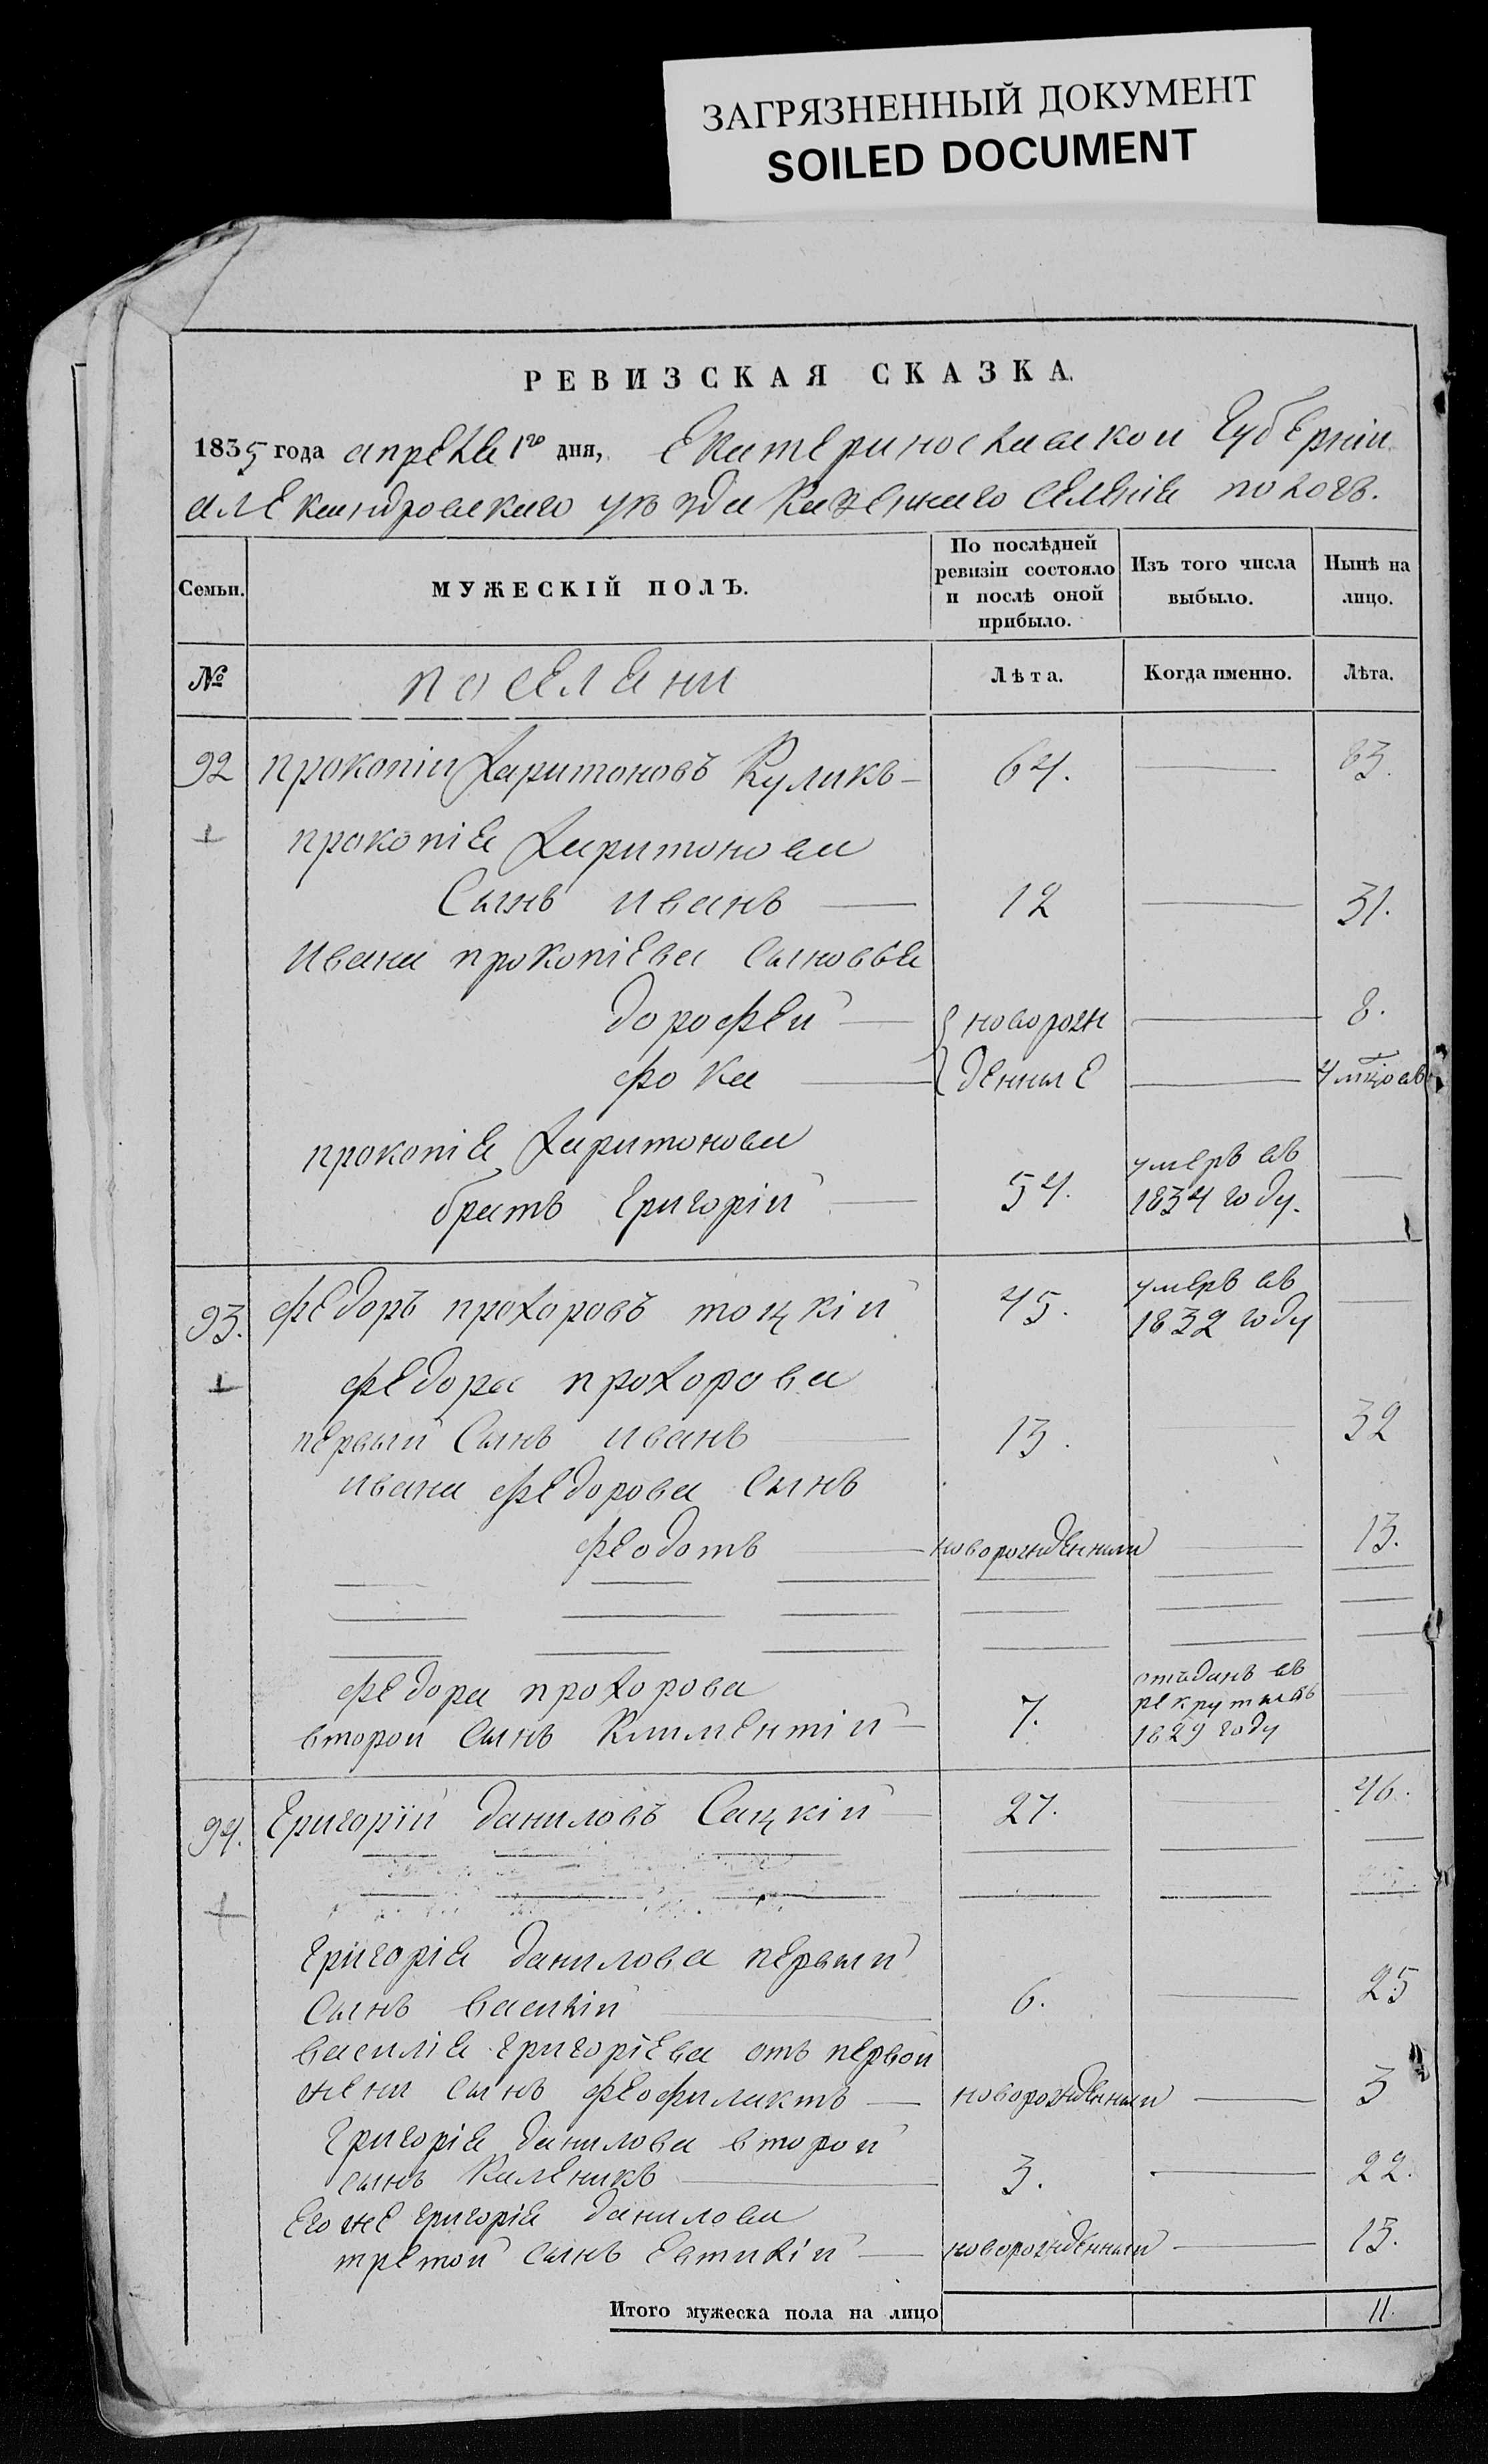 ЗАГРЯЗНЕННЫЙ ДОКУМЕНТ
SOILED DOCUMENT
РЕВИЗСКАЯ СКАЗКА.
1835 года апреля 1го дня, Екатеринославской Губернiи
александровскаго уѣзда Казеннаго селенiя пологъ.
Семьи.
МУЖЕСКIЙ ПОЛЪ.
По послѣдней
ревизiи состояло
и послѣ оной
прибыло.
Изъ того числа
выбыло.
Нынѣ на
лицо.
№
поселяни
Лѣта.
Когда именно.
Лѣта.
92 прокопiи Харитоновъ Куликъ 64. 83.
прокопiя Харитонова
Сынъ иванъ 12 31.
ивана прокопiева сыновья
дорофей новорож 8.
фока денные 4 мцовъ
прокопiя Харитонова
братъ Григорiй 54. умеръ въ
1834 году.
93. федоръ прохоровъ тоцкiй 45. умеръ въ
1832 году
федора прохорова
первый Сынъ иванъ 13. 32
ивана федорова сынъ
феодотъ новорожденный 13.
федора прохорова
второй сынъ Климентiй 7. отъданъ въ
рекруты въ
1829 году
94. Григорiй даниловъ Сацкiй 27. 46.
Григорiя данилова первый
Сынъ василiй 6. 25
василiя григорiева отъ первой
жены сынъ феофилактъ новорожденный 3
Григорiя данилова второй
сынъ Каленикъ 3. 22.
Его же григорiя данилова
третой сынъ Евтихiй новорожденный 13.
Итого мужеска пола на лицо 11.